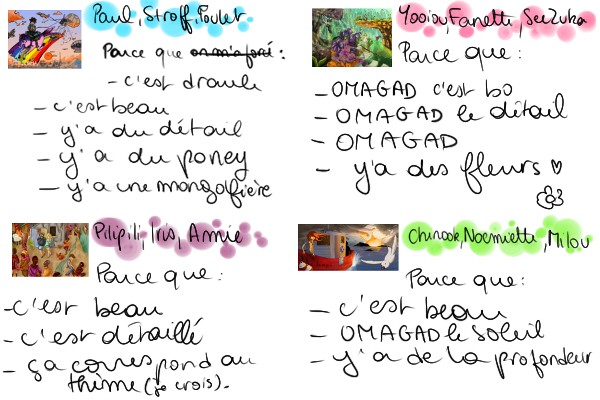 Paul, Stroff, Poulet
Parce que on m'a forcé :
- c'est drole
- c'est beau
- y'a du détail
- y'a du poney
- y'a une mongolfière
Yooiou, Fanette, SeeZuka
Parce que :
- OMAGAD c'est bo
- OMAGAD le détail
- OMAGAD
- y'a des fleurs ♡
Pilipili, Iris, Amie
Parce que :
- c'est beau
- c'est détaillé
- ça correspond au
thème (je crois).
Chinook, Noemiette, Milou
Parce que :
- c'est beau
- OMAGAD le soleil
- y'a de la profondeur